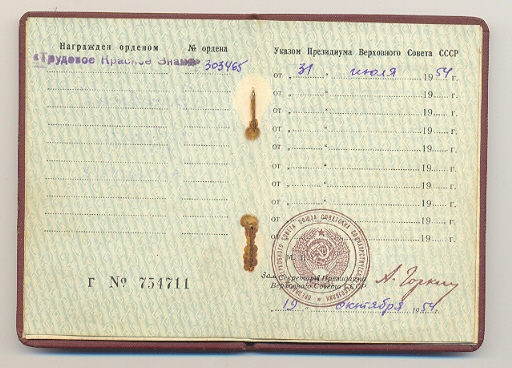 Награжден орденом № ордена
«Трудовое Красное Знамя» 303465
Г № 754711
Указом Президиума Верховного Совета СССР
от „ 31 " июля 1954 г.
от „ " 19 г.
от „ " 19 г.
от „ " 19 г.
от „ " 19 г.
от „ " 19 г.
от „ " 19 г.
от „ " 19 г.
от „ " 19 г.
от „ " 19 г.
М. П.
Зам. Секретаря Президиума
Верховного Совета СССР
А. Горкин
„ 19 " октября 1954 г.